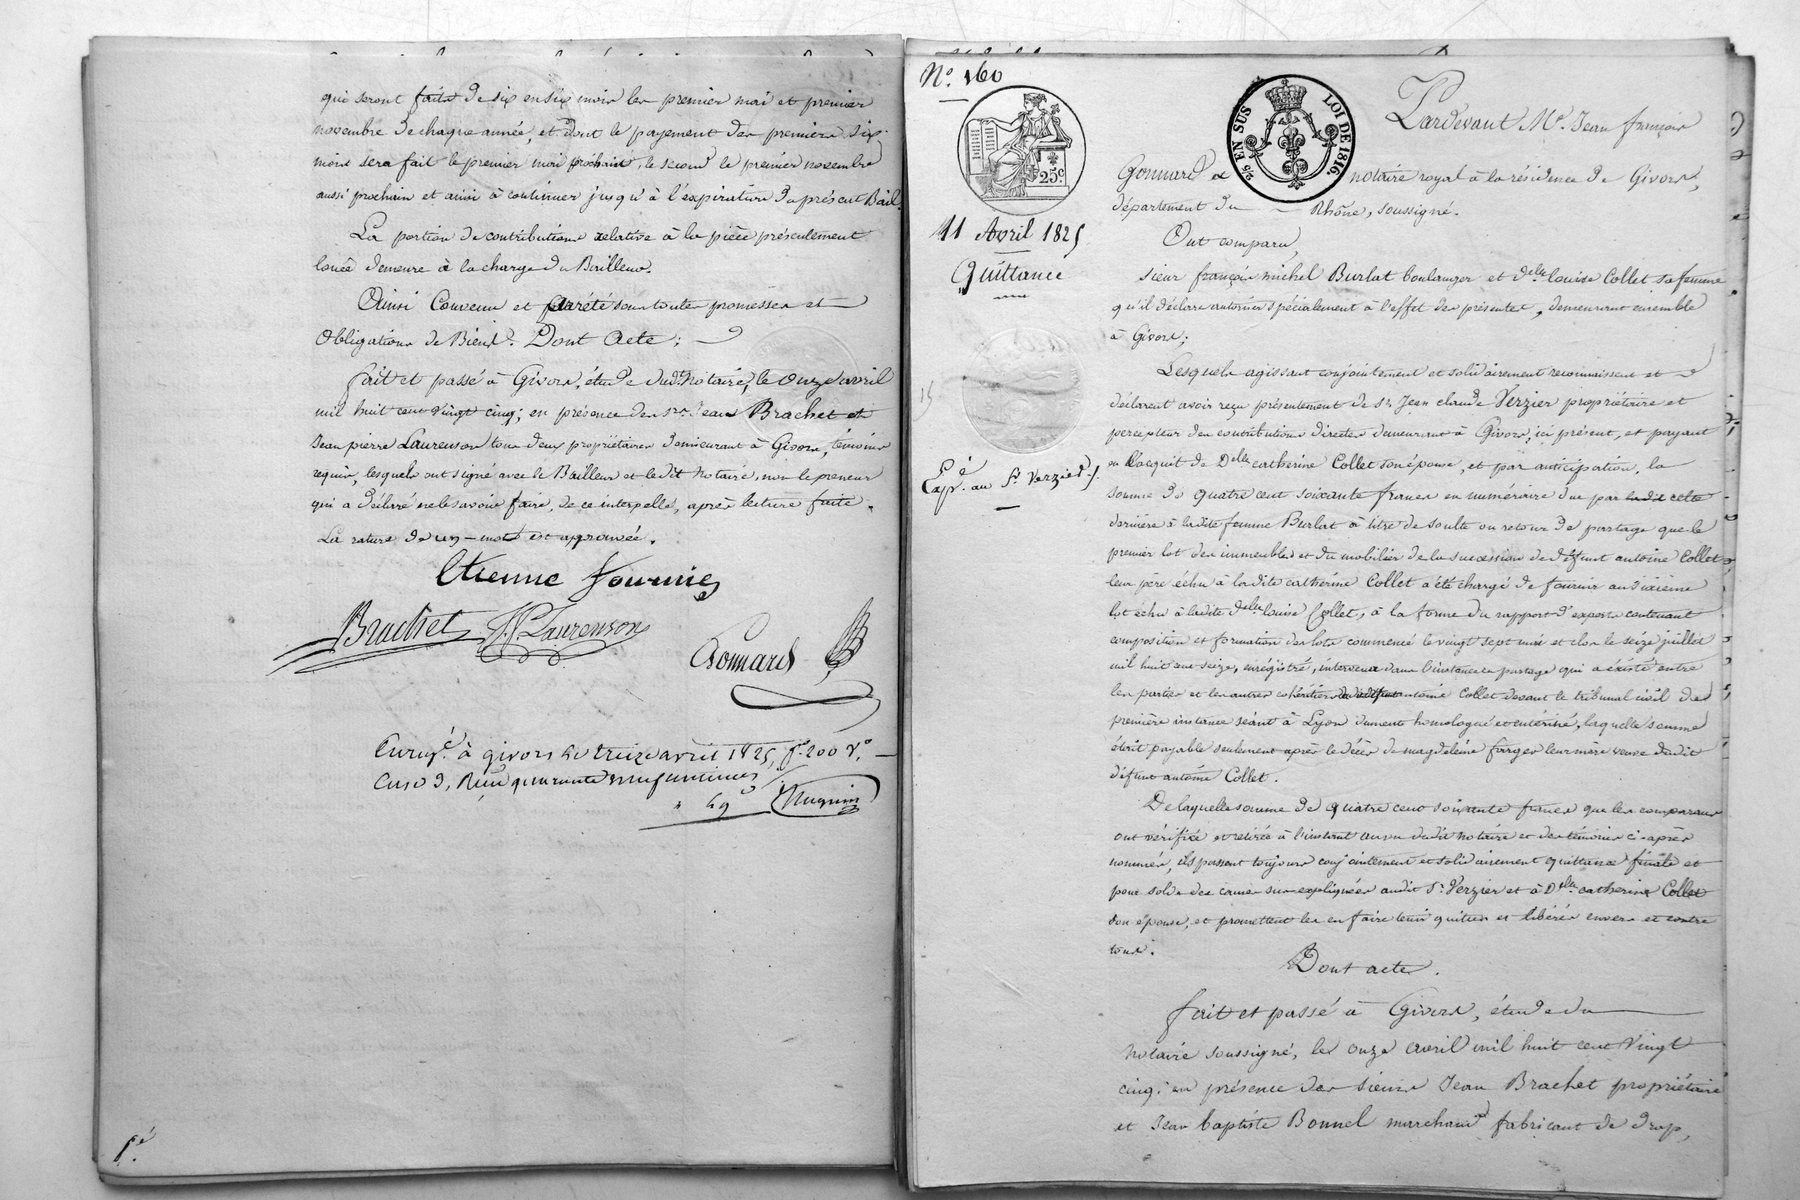 qui seront faits de six en six mois les premier mai et premier
novembre de chaque année, et dont le payement des premiers six
mois sera fait le premier mai prochain, le second le premier novembre
aussi prochain et ainsi à continuer jusqu'à l'expiration du présent Bail.
La portion de contributions relative à la pièce présentement
louée demeure à la charge du Bailleur.
Ainsi Convenu et arrêté sous toutes promesses et
Obligations de Biens. Dont Acte;
fait et passé à Givors, étude dudt Notaire, le onze avril
mil huit cent vingt cinq; en présence des srs Jean Brachet et
Jean pierre Laurenson tous deux propriétaires demeurant à Givors, témoins
requis, lesquels ont signé avec le Bailleur et ledit Notaire, non le preneur
qui a déclaré ne le savoir faire, de ce interpellé, après lecture faite.
La rature de un mot est approuvée.
Etienne Fournier
Brachet J. P. Laurenson
Gonnard
Enregé. à givors le treize avril 1825, f° 200 V°.
Case 3, Reçu quarante neuf centimes
" 49 c
Hugnin
Pé.
N.° 160
25c
2/5 EN SUS LOI DE 1816.
Pardevant Me. Jean françois
Gonnard notaire royal à la résidence de Givors,
département du Rhône, soussigné.
11 Avril 1825
Quittance
Ont comparu,
sieur françois michel Burlat boulanger et delle louise Collet sa femme
qu'il déclare autoriser spécialement à l'effet des présentes, demeurant ensemble
à Givors;
Lesquels agissant conjointement et solidairement reconnaissent et
déclarent avoir reçu présentement de sr. Jean claude Verzier propriétaire et
percepteur des contributions directes demeurant à Givors, ici présent, et payant
en l'acquit de Delle catherine Collet son épouse, et par anticipation, la
Expé. au Sr. Verzier
somme de quatre cent soixante francs en numéraire due par ladite cette
dernière à ladite femme Burlat à titre de soulte ou retour de partage que le
premier lot des immeubles et du mobilier de la succession de défunt antoine Collet
leur père échu à ladite catherine Collet a été chargé de fournir au sixième
lot échu à ladite delle louise Collet, à la forme du rapport d'experts contenant
composition et formation des lots commencé le vingt sept mai et clos le seize juillet
mil huit cent seize, enrégistré, intervenu dans l'instance en partage qui a éxisté entre
les parties et les autres cohéritiers dudit antoine Collet devant le tribunal civil de
première instance séant à Lyon dument homologué et entériné, laquelle somme
était payable seulement après le décès de magdeleine farge leur mère veuve dudit
défunt antoine Collet.
De laquelle somme de quatre cent soixante francs que les comparans
ont vérifiée et retirée à l'instant au vu dudit notaire et des témoins ci-après
nommés, ils passent toujours conjointement et solidairement quittance finale et
pour solde des causes sus-expliquées audit Sr. Verzier et à Delle catherine Collet
son épouse, et promettent les en faire tenir quittes et libérés envers et contre
tous.
Dont acte.
fait et passé à Givors, étude du
notaire soussigné, le onze avril mil huit cent vingt
cinq; en présence des sieurs Jean Brachet propriétaire
et Jean baptiste Bonnel marchand fabricant de drap,